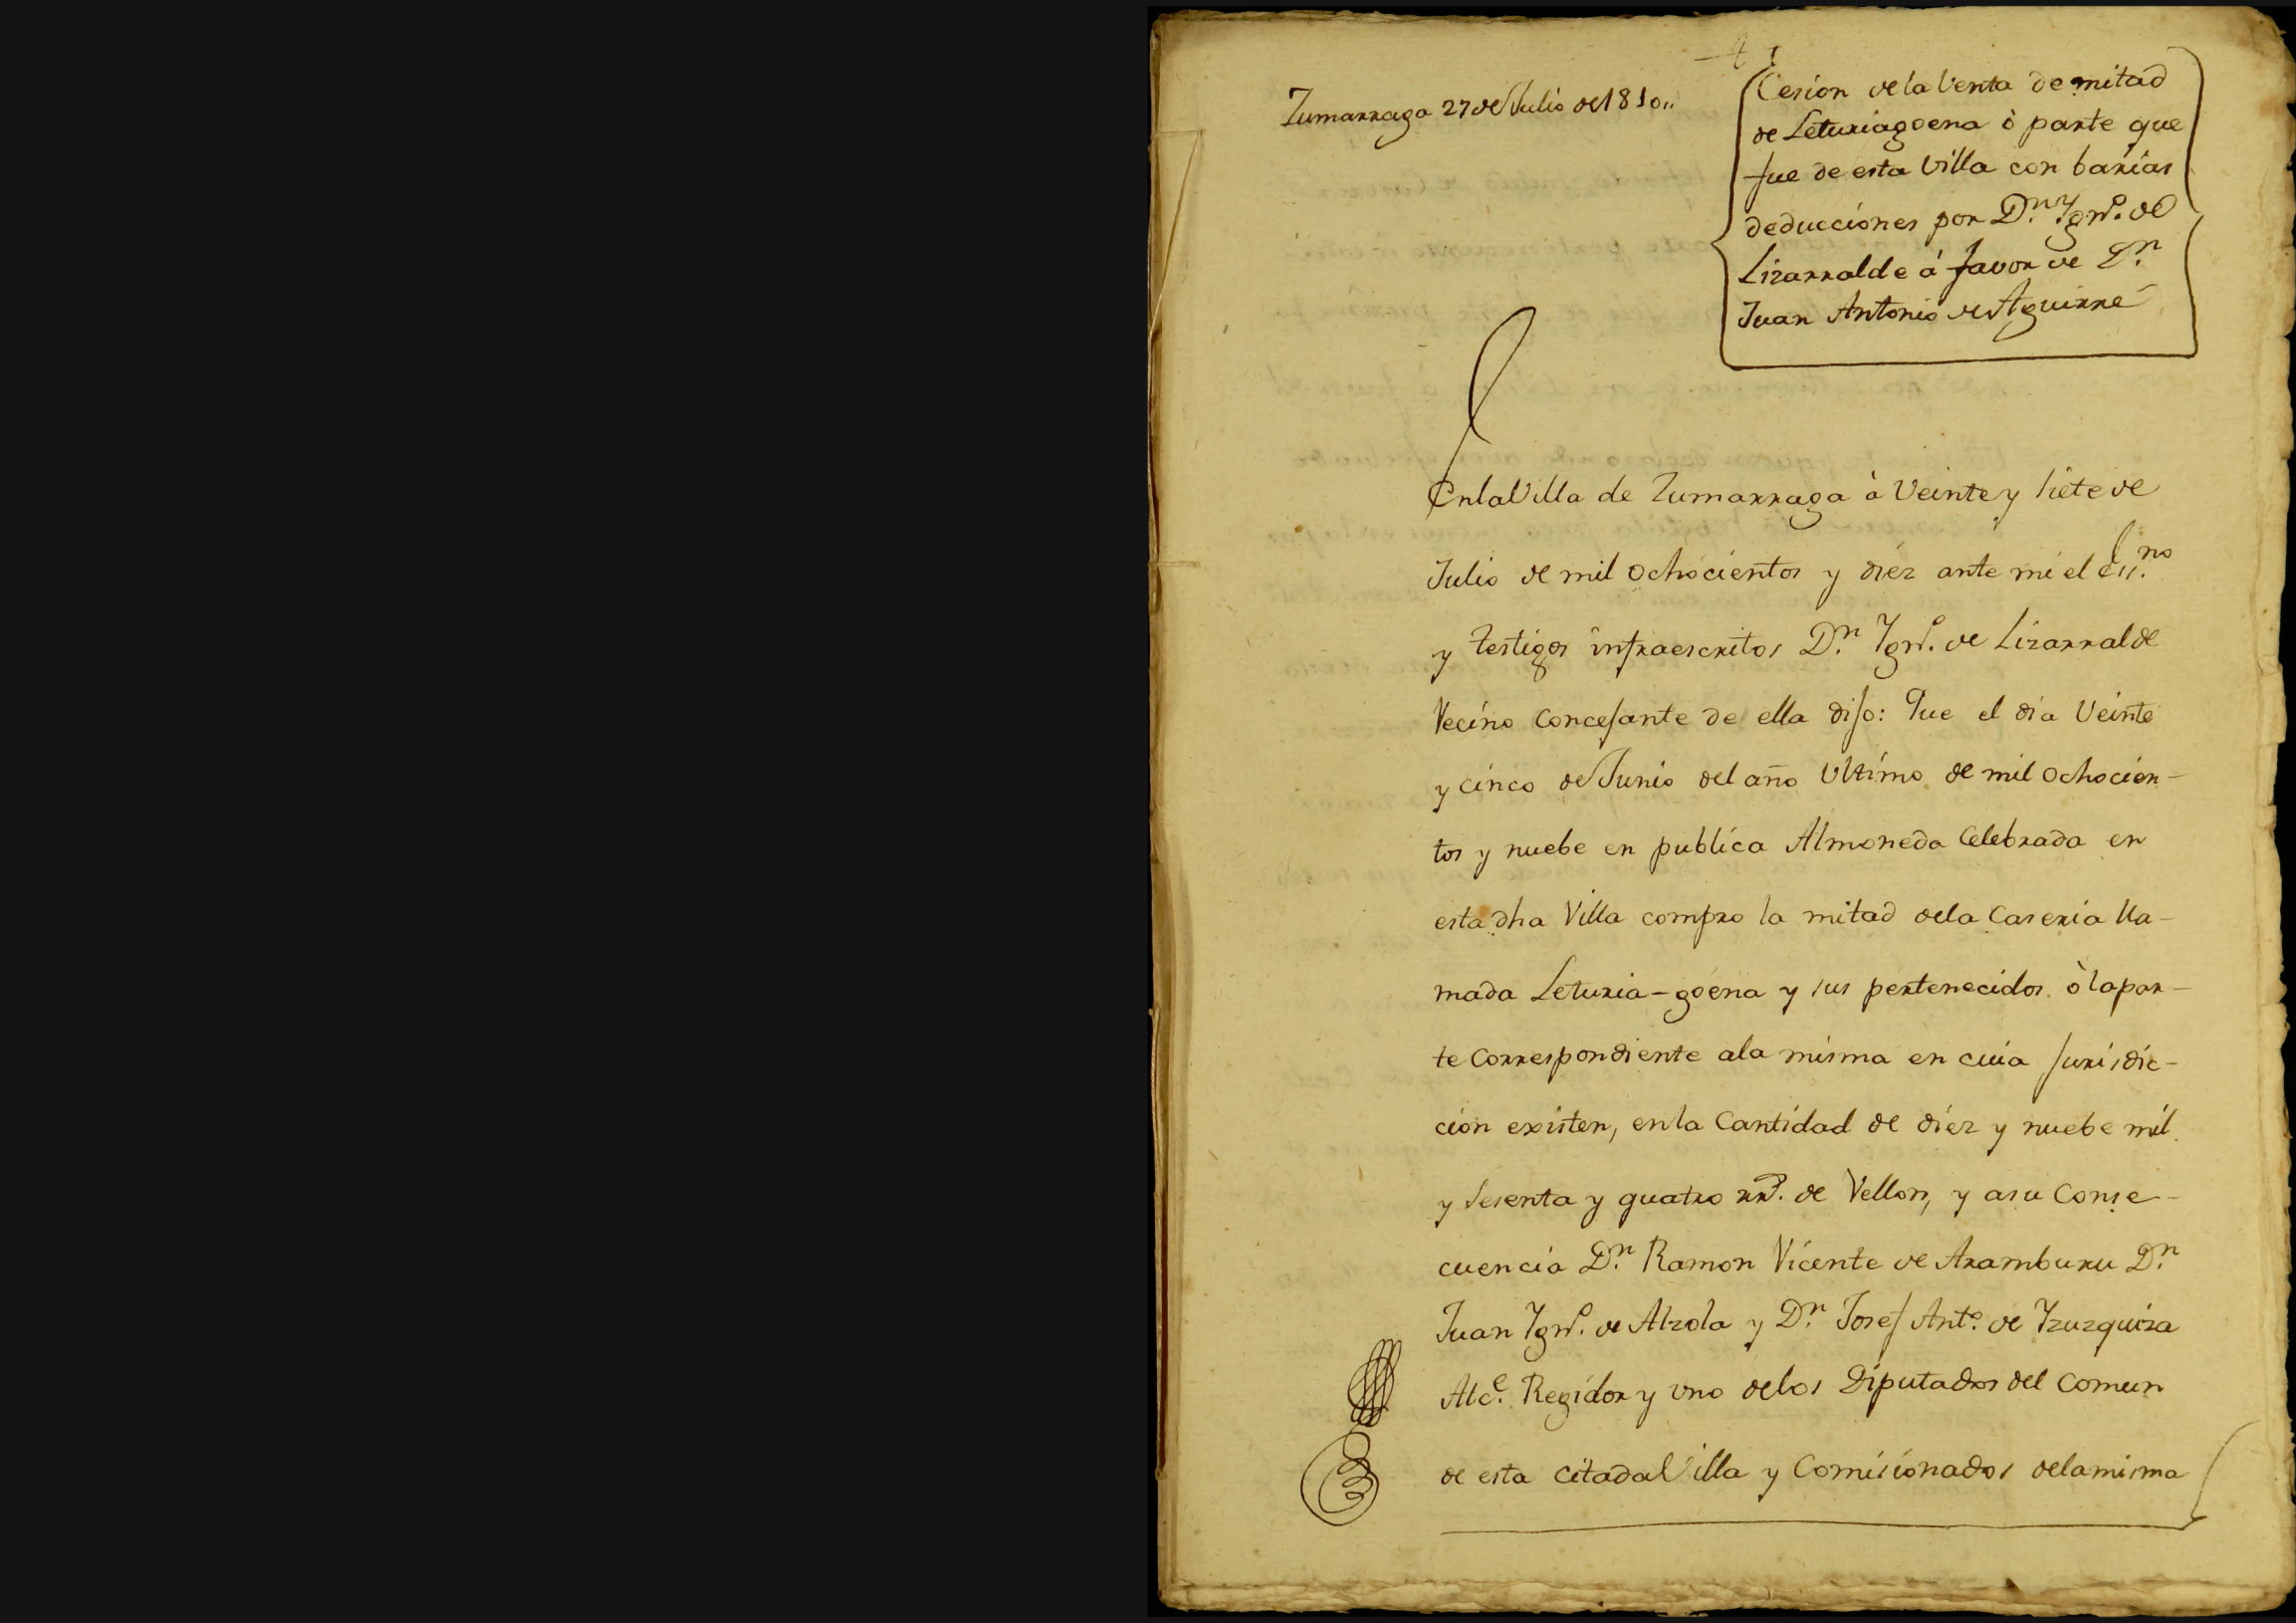 Zumarraga 27 de Julio de 1810,,
Cesion de la Venta de mitad
de Leturiagoena ò parte que
fue de esta Villa con barias
deducciones por Dn. Ygnº. de
Lizarralde á favor de Dn.
Juan Antonio de Aguirre
En la Villa de Zumarraga à Veinte y siete de
Julio de mil ochocientos y diéz ante mi el Essno.
y testigos infraescritos Dn. Ygnº. de Lizarralde
Vecino concejante de ella dijo: Que el dia Veinte
y cinco de Junio del año Ultimo de mil ochocien-
tos y nuebe en publica Almoneda Celebrada en
esta dha Villa compro la mitad de la Caseria lla-
mada Leturia-goena y sus pertenecidos ò la par-
te correspondiente a la misma en cuia jurisdic-
cion existen, en la Cantidad de diéz y nuebe mil
y sesenta y quatro rrs. de Vellon, y a su Conse-
cuencia Dn. Ramon Vicente de Aramburu Dn.
Juan Ygnº. de Alzola y Dn. Josef Antº. de Yzuzquiza
Alce. Regidor y uno de los Diputados del Comun
de esta citada Villa y Comisionados de la misma